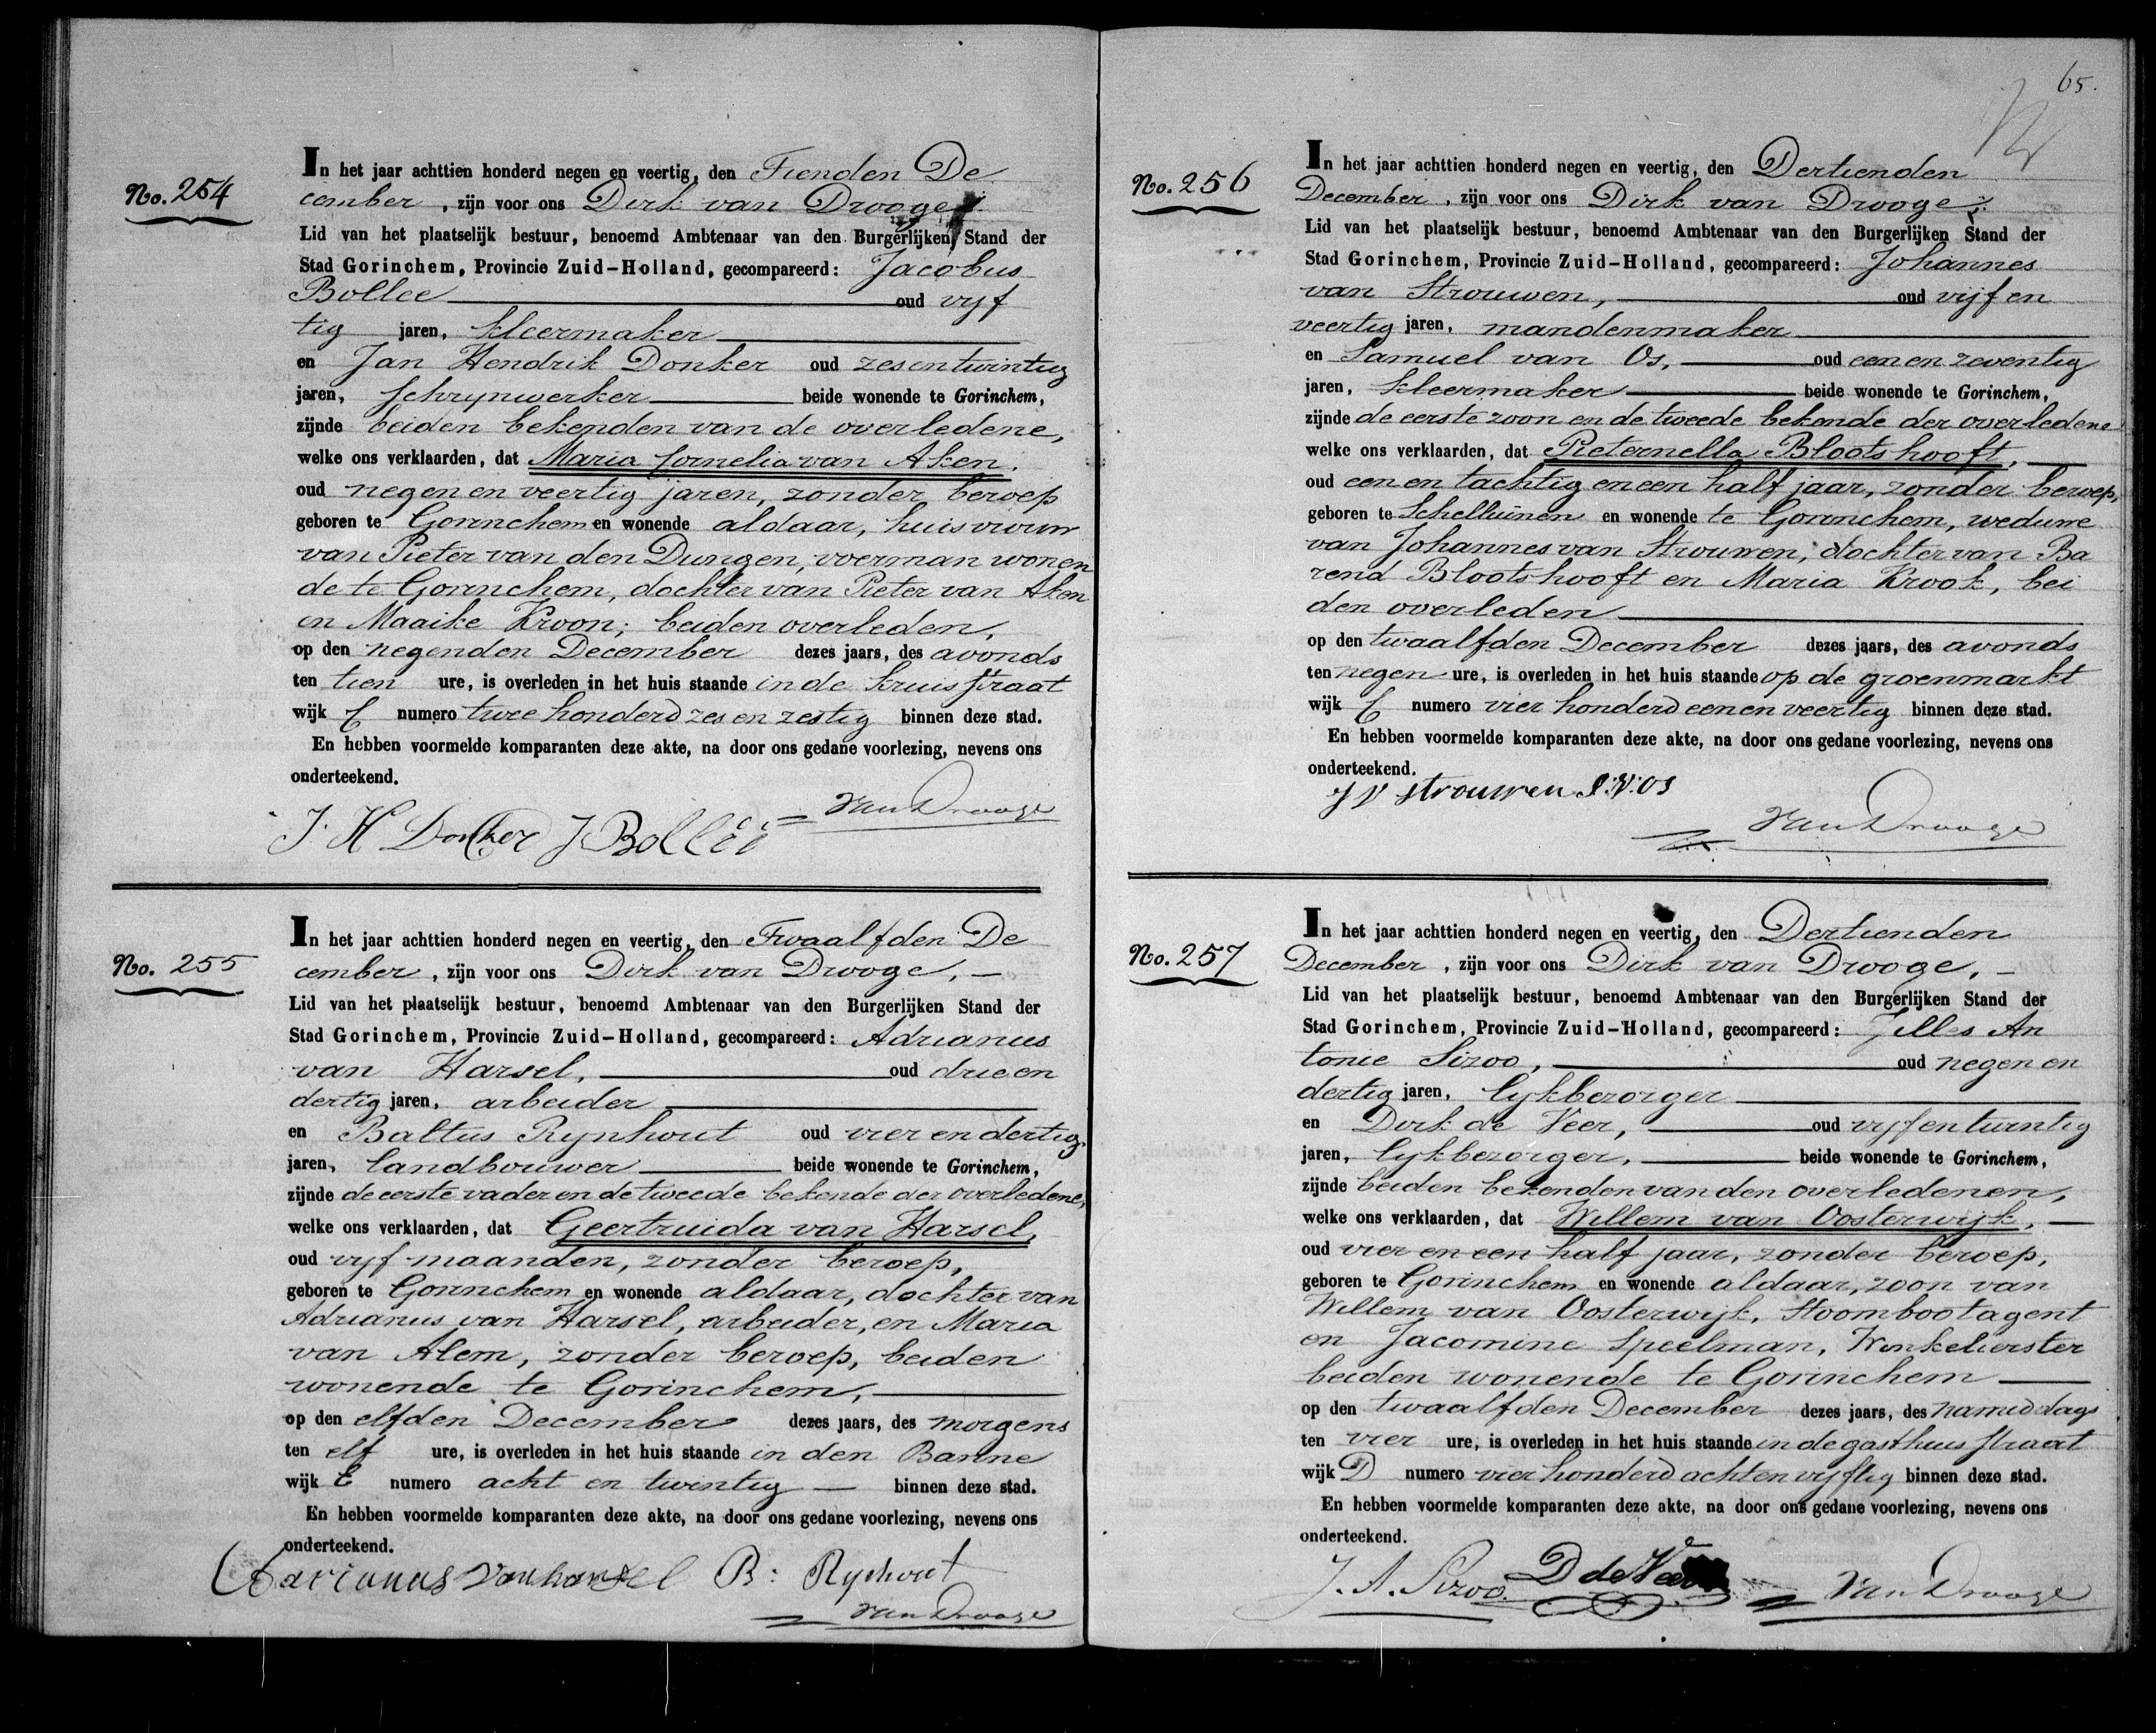 No. 254
In het jaar achttien honderd negen en veertig, den Tienden De
cember , zijn voor ons Dirk van Drooge,
Lid van het plaatselijk bestuur, benoemd Ambtenaar van den Burgerlijken Stand der
Stad Gorinchem, Provincie Zuid-Holland, gecompareerd: Jacobus
Bollee oud vijf
tig jaren, kleermaker
en Jan Hendrik Donker oud zesentwintig
jaren, schrijnwerker beide wonende te Gorinchem,
zijnde beiden bekenden van de overledene,
welke ons verklaarden, dat Maria Cornelia van Aken,
oud negen en veertig jaren, zonder beroep
geboren te Gorinchem en wonende aldaar, huisvrouw
van Pieter van den Dungen, voerman wonen
de te Gorinchem, dochter van Pieter van Aken
en Maaike Kroon; beiden overleden,
op den negenden December dezes jaars, des avonds
ten tien ure, is overleden in het huis staande in de kruisstraat
wijk C numero twee honderd zes en zestig binnen deze stad.
En hebben voormelde komparanten deze akte, na door ons gedane voorlezing, nevens ons
onderteekend.
J. H Donker J Bolleé Van Drooge
No. 255
In het jaar achttien honderd negen en veertig, den Twaalfden De
cember , zijn voor ons Dirk van Drooge,
Lid van het plaatselijk bestuur, benoemd Ambtenaar van den Burgerlijken Stand der
Stad Gorinchem, Provincie Zuid-Holland, gecompareerd: Adrianus
van Harsel, oud drie en
dertig jaren, arbeider
en Baltus Rijnhout oud vier en dertig
jaren, landbouwer beide wonende te Gorinchem,
zijnde de eerste vader en de tweede bekende der overledene,
welke ons verklaarden, dat Geertruida van Harsel,
oud vijf maanden, zonder beroep,
geboren te Gorinchem en wonende aldaar, dochter van
Adrianus van Harsel, arbeider, en Maria
van Alem, zonder beroep, beiden
wonende te Gorinchem,
op den elfden December dezes jaars, des morgens
ten elf ure, is overleden in het huis staande in den Banne
wijk E numero acht en twintig binnen deze stad.
En hebben voormelde komparanten deze akte, na door ons gedane voorlezing, nevens ons
onderteekend.
Aarianus van harsel B: Rynhout
Van Drooge
65.
No. 256
In het jaar achttien honderd negen en veertig, den Dertienden
December , zijn voor ons Dirk van Drooge,
Lid van het plaatselijk bestuur, benoemd Ambtenaar van den Burgerlijken Stand der
Stad Gorinchem, Provincie Zuid-Holland, gecompareerd: Johannes
van Strouwen, oud vijf en
veertig jaren, mandenmaker
en Samuel van Os, oud een en zeventig
jaren, kleermaker beide wonende te Gorinchem,
zijnde de eerste zoon en de tweede bekende der overledene
welke ons verklaarden, dat Pieternella Blootshooft,
oud een en tachtig en een half jaar, zonder beroep,
geboren te Schelluinen en wonende te Gorinchem, weduwe
van Johannes van Strouwen, dochter van Ba
rend Blootshooft en Maria Krook, bei
den overleden
op den twaalfden December dezes jaars, des avonds
ten negen ure, is overleden in het huis staande op de groenmarkt
wijk C numero vier honderd een en veertig binnen deze stad.
En hebben voormelde komparanten deze akte, na door ons gedane voorlezing, nevens ons
onderteekend.
J V Strouwen S:V:Os
Van Drooge
No. 257
In het jaar achttien honderd negen en veertig, den Dertienden
December , zijn voor ons Dirk van Drooge,
Lid van het plaatselijk bestuur, benoemd Ambtenaar van den Burgerlijken Stand der
Stad Gorinchem, Provincie Zuid-Holland, gecompareerd: Jilles An
tonie Siroo, oud negen en
dertig jaren, lijkbezorger
en Dirk de Veer, oud vijf en twintig
jaren, lijkbezorger, beide wonende te Gorinchem,
zijnde beiden bekenden van den overledenen,
welke ons verklaarden, dat Willem van Oosterwijk,
oud vier en een half jaar, zonder beroep,
geboren te Gorinchem en wonende aldaar, zoon van
Willem van Oosterwijk, Stoombootagent
en Jacomine Speelman, Winkelierster
beiden wonende te Gorinchem
op den twaalfden December dezes jaars, des namiddags
ten vier ure, is overleden in het huis staande in de gasthuis straat
wijk D numero vier honderd acht en vijftig binnen deze stad.
En hebben voormelde komparanten deze akte, na door ons gedane voorlezing, nevens ons
onderteekend.
J. A. Siroo. D de Veer Van Drooge